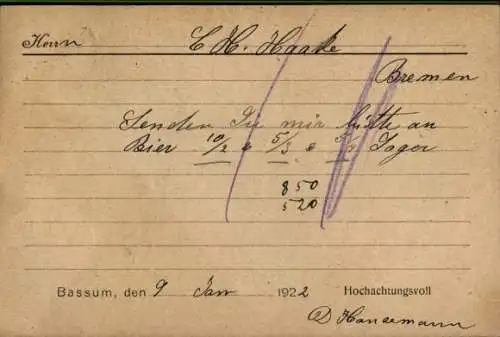 Herrn C. H. Haake
Bremen
Senden Sie mir bitte an
Bier 10/2 e 5/3 e 5/2 Lager
850
520
Bassum, den 9 Jan 1922 Hochachtungsvoll
D Hansemann